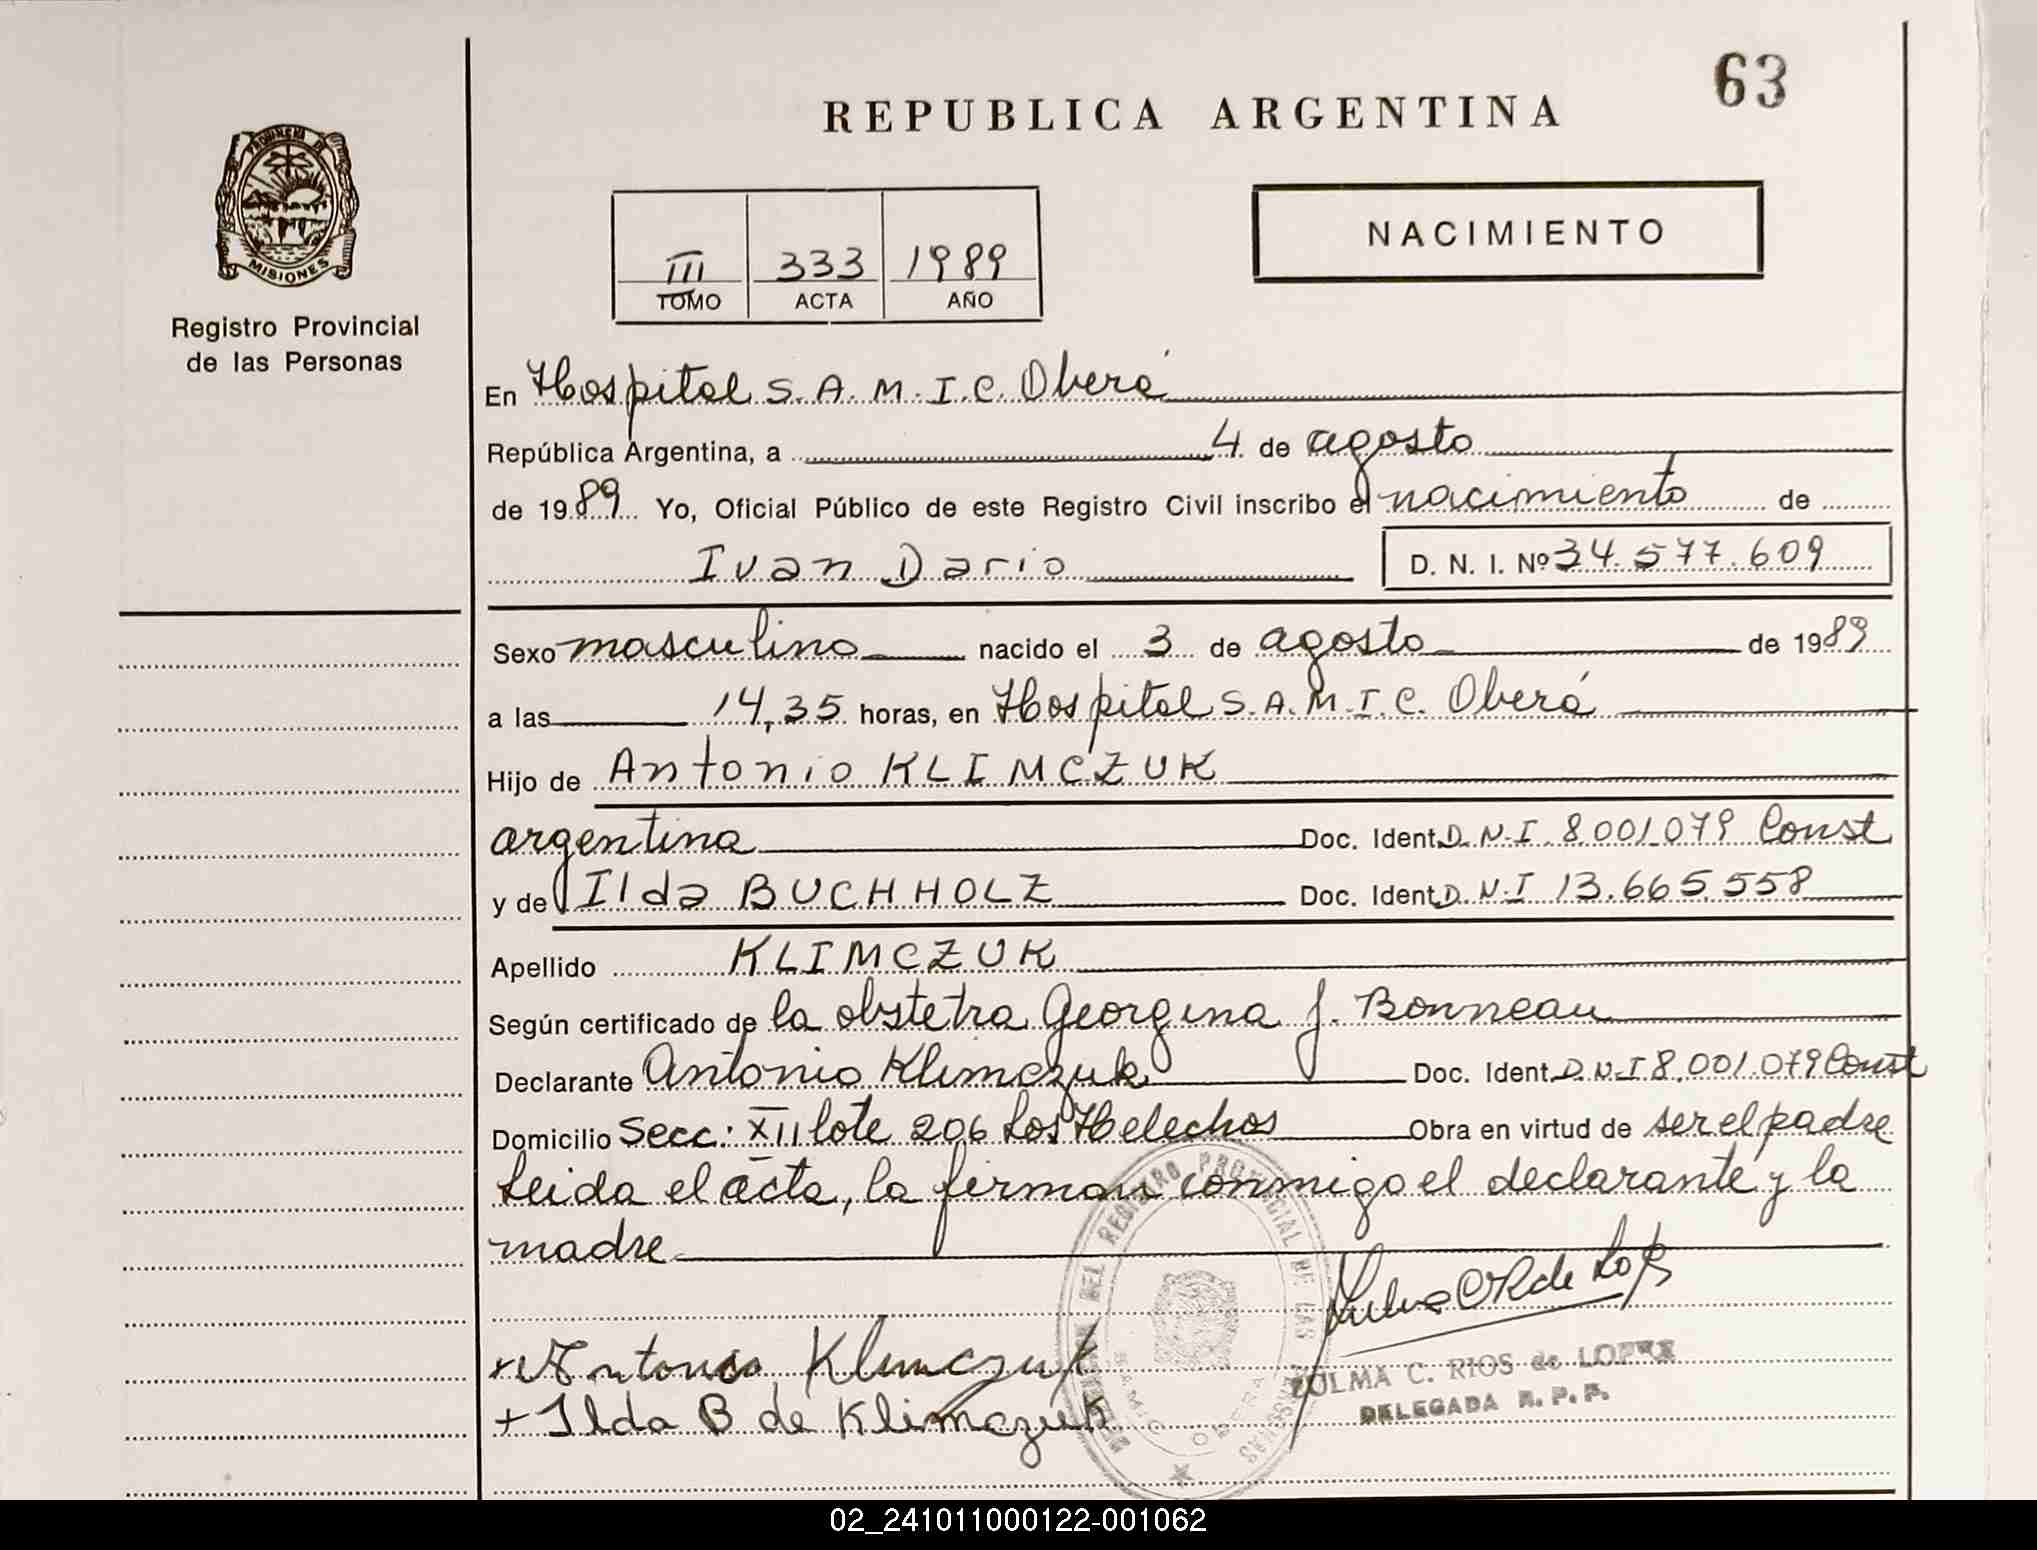 63
REPUBLICA ARGENTINA
PROVINCIA DE
MISIONES
Registro Provincial
de las Personas
III 333 1989
TOMO ACTA AÑO
NACIMIENTO
En Hospital S.A.M.I.C. Oberá
República Argentina, a 4 de agosto
de 1989 Yo, Oficial Público de este Registro Civil inscribo el nacimiento de
Ivan Dario D. N. I. Nº 34.577.609
Sexo masculino nacido el 3 de agosto de 1989
a las 14,35 horas, en Hospital S.A.M.I.C. Oberá
Hijo de Antonio KLIMCZUK
argentina Doc. Ident. D.N.I. 8.001.079 Const
y de Ilda BUCHHOLZ Doc. Ident. D.N.I 13.665.558
Apellido KLIMCZUK
Según certificado de la obstetra Georgina J. Bonneau
Declarante Antonio Klimczuk Doc. Ident. D.N.I 8.001.079 Const
Domicilio Secc: XII lote 206 Los Helechos Obra en virtud de ser el padre
Leida el acta, la firman conmigo el declarante y la
madre
DEL REGISTRO PROVINCIAL DE LAS PERSONAS
SAMIC OBERA
+ Antonio Klimczuk
+ Ilda B de Klimczuk
ZULMA C. RIOS de LOPEZ
DELEGADA R. P. P.
02_241011000122-001062